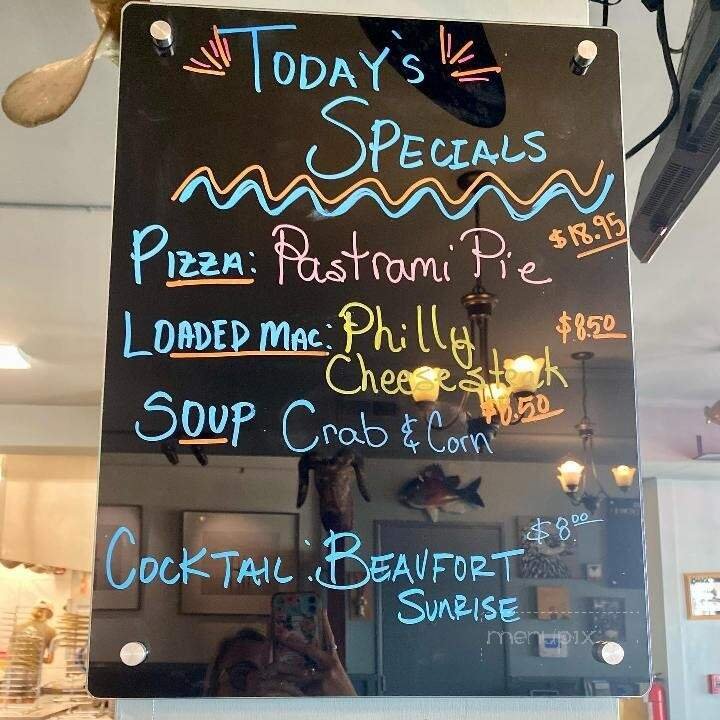 TODAY'S
SPECIALS
PIZZA: Pastrami Pie $18.95
LOADED MAC: Philly $8.50
Cheesesteak
SOUP Crab & Corn $6.50
COCKTAIL: BEAUFORT $8.00
SUNRISE
menupix